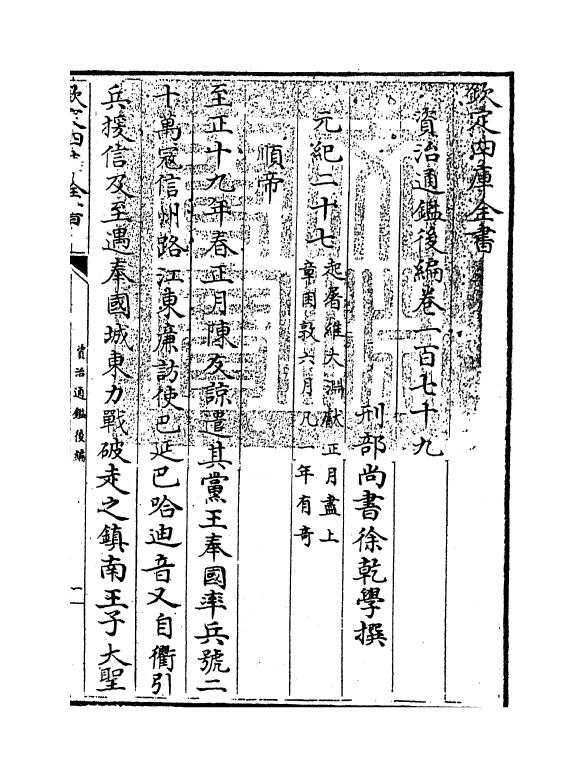 欽定四庫全書
資治通鑑後編卷一百七十九
刑部尚書徐乾學撰
元紀二十七
起著雍大淵獻正月盡上
章困敦六月凡一年有奇
順帝
至正十九年春正月陳友諒遣其黨王奉國率兵號二
十萬寇信州路江東廉訪使巴延巴哈迪音又自衢引
兵援信及至遇奉國城東力戰破走之鎮南王子大聖
資治通鑑後編
一